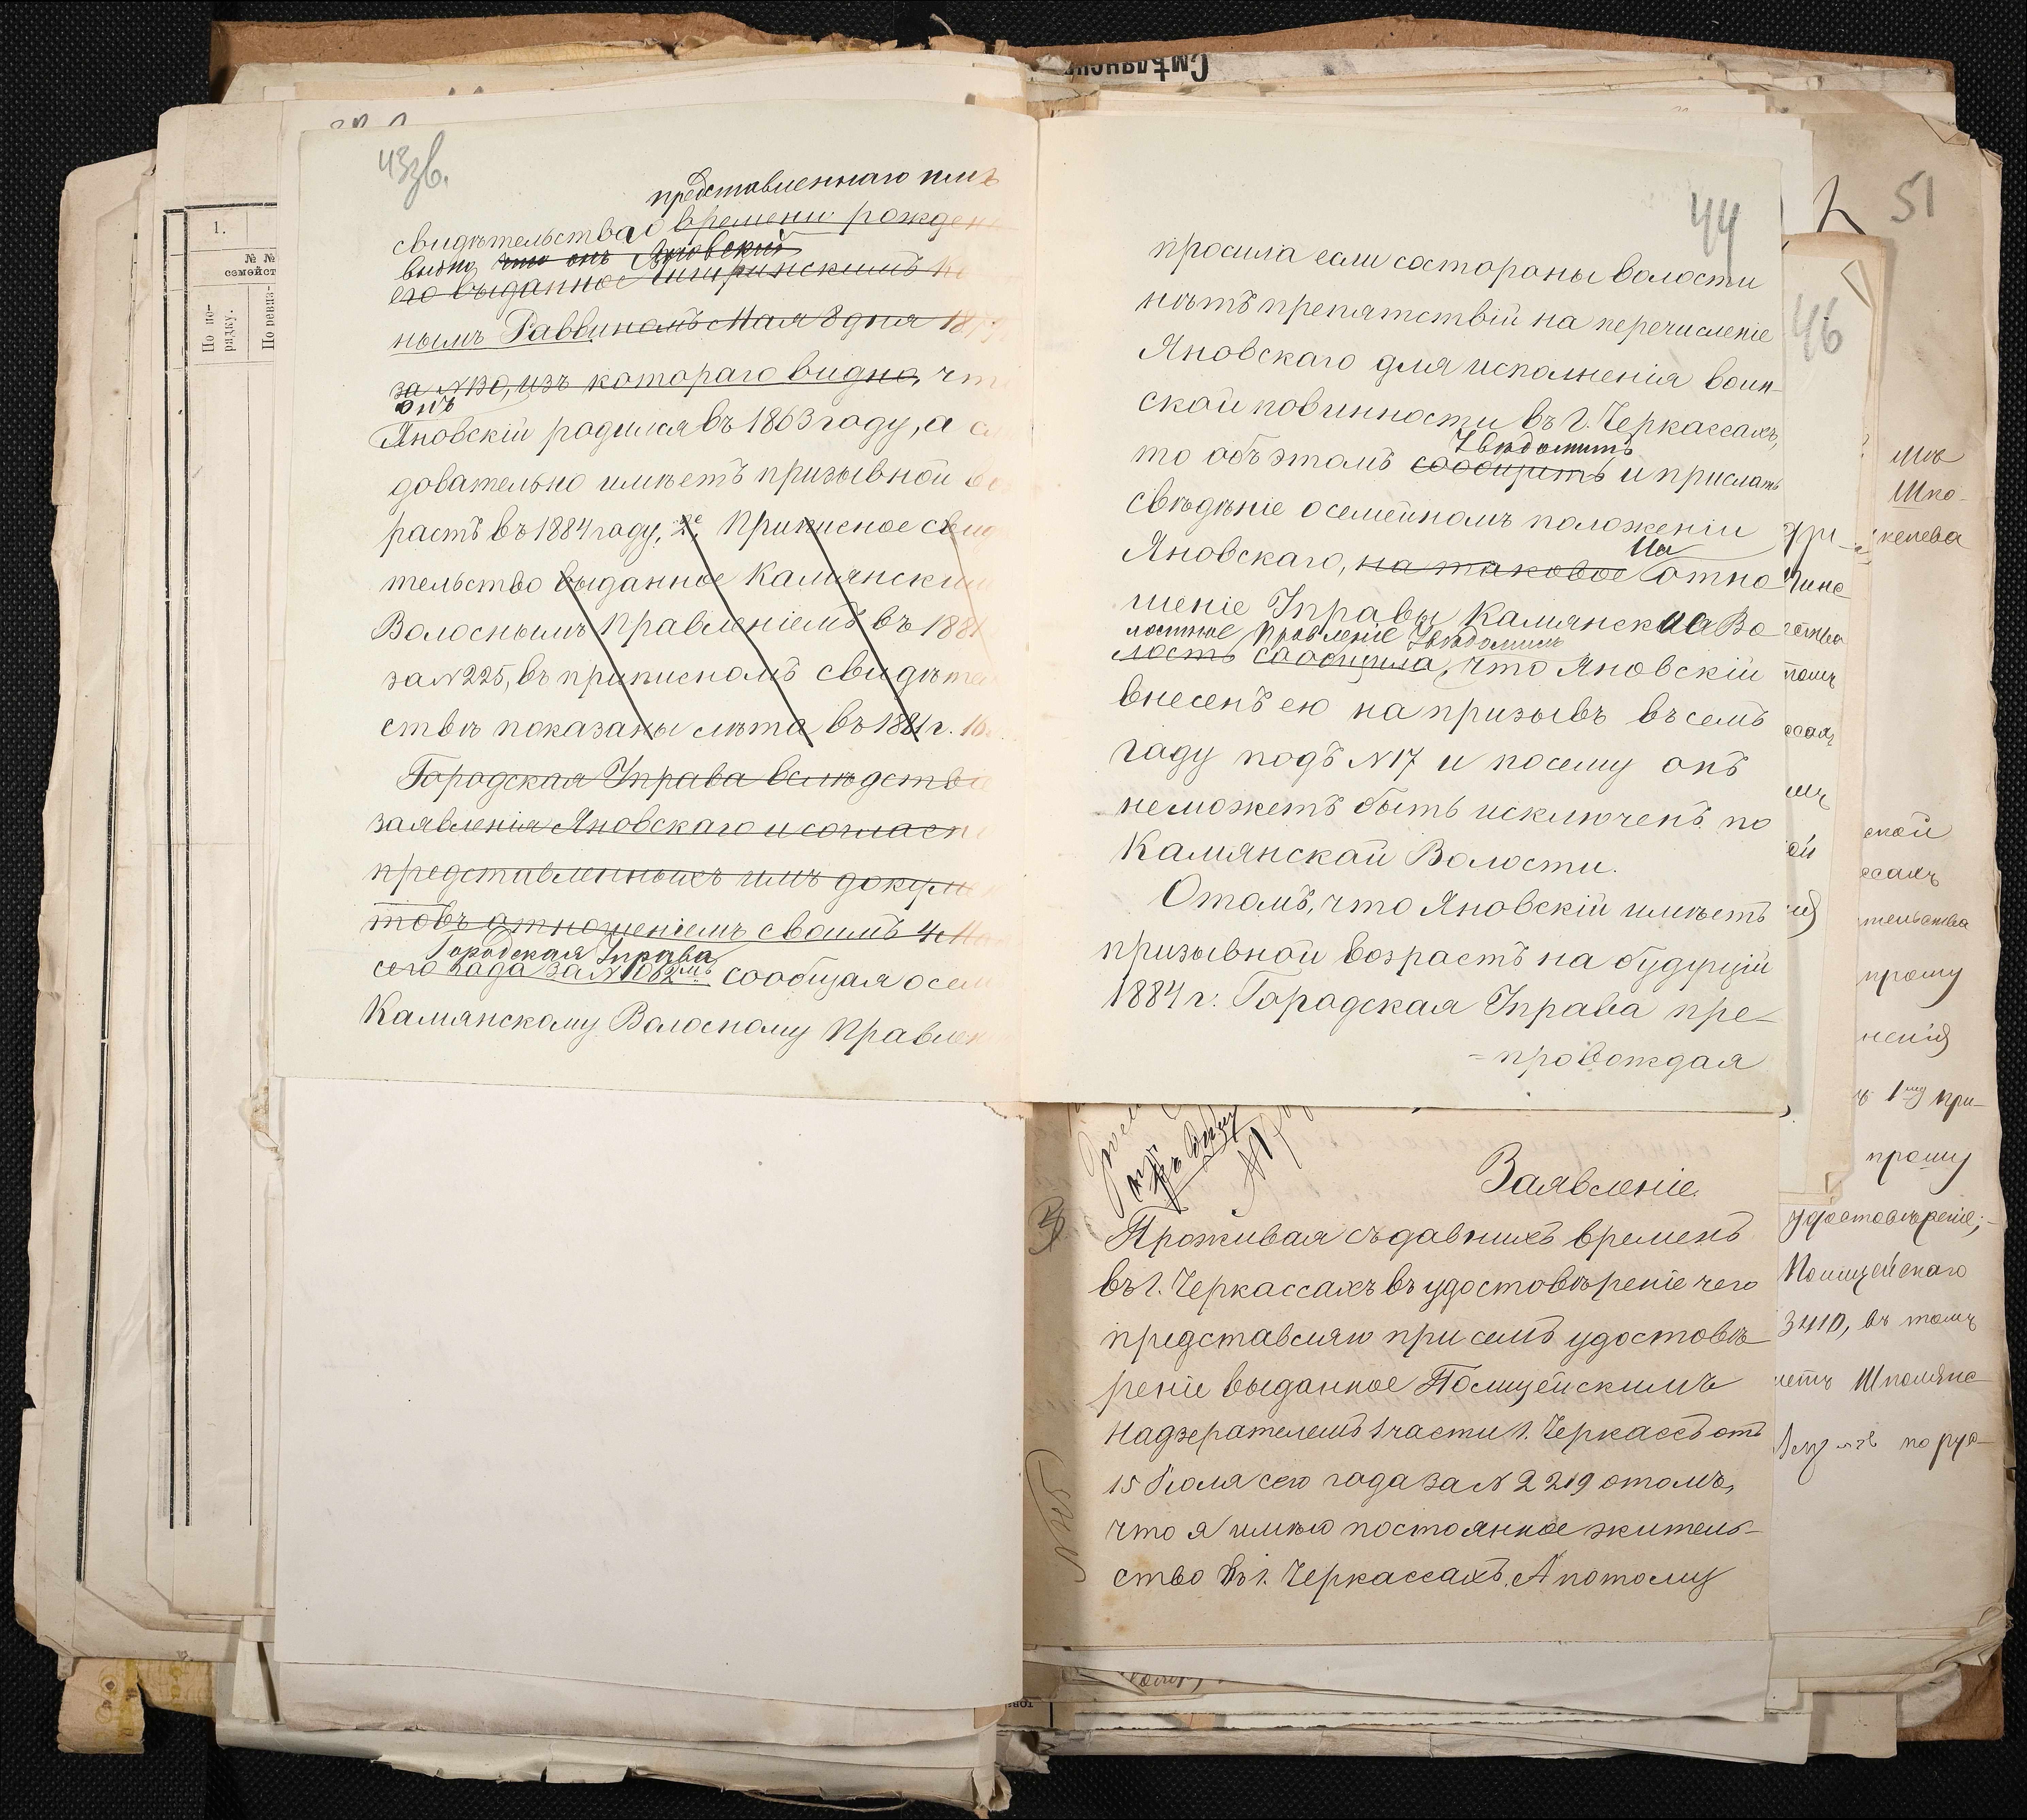 Смѣлянск
43зв.
представленнаго имъ
свидѣтельства о времени рожден
видно что онъ Яновский
его выданное Чигиринскимъ
нымъ Раввиномъ Мая 8 дня 187
за N130, изъ котораго видно, что
онъ
Яновскій родился въ 1863 году, а сл
довательно имѣетъ призывной воз
растъ въ 1884 году, 2е, Приписное свид
тельство выданное Камянским
Волоснымъ Правленіемъ въ 1881
за N225, въ приписномъ свидѣтел
ствѣ показаны лѣта въ 1881 г. 18
Городская Управа вслѣдствіе
заявленія Яновскаго и согласн
представленныхъ имъ докуме
товъ отношеніемъ своимъ 4
Городская Управа
сего года за N1062мъ сообщая о сем
Камянскому Волосному Правлен
44
просила если состороны волости
нѣтъ препятствій на перечисленіе
Яновскаго для исполненія воин-
ской повинности въ г. Черкассахъ,
Увѣдомить
то объ этомъ сообщить и прислать
свѣдѣніе осемейномъ положеніи
На
Яновскаго, на таковое отно
шеніе Управы Камянская Во
лостное Правленіе Увѣдомило
лость сообщила, что Яновскій
внесенъ ею на призывъ въ семъ
году подъ N17 и посему онъ
неможетъ быть исключенъ по
Камянской Волости.
Отомъ, что Яновскій имѣетъ
призывной возрастъ на будущій
1884 г. Городская Управа пре-
=провождая
Заявленіе
Проживая съдавнихъ временъ
въ г. Черкассахъ въ удостовѣреніе чего
представляю при семъ удостовѣ
реніе выданное Полицейскимъ
Надзерателемъ 1 части г. Черкассъ отъ
15 Іюля сего года за N 2219 отомъ,
что я имѣю постоянное житель-
ство въ г. Черкассахъ. А потому
46
51
Шпо-
келева
ской
ссахъ
тельства
прошу
ненія
1му при-
прошу
удостовѣреніе;-
Полицейскаго
3410, въ томъ
Шполянс
по рус-
1.
№ №
семейст
По по-
рядку.
По ревиз-